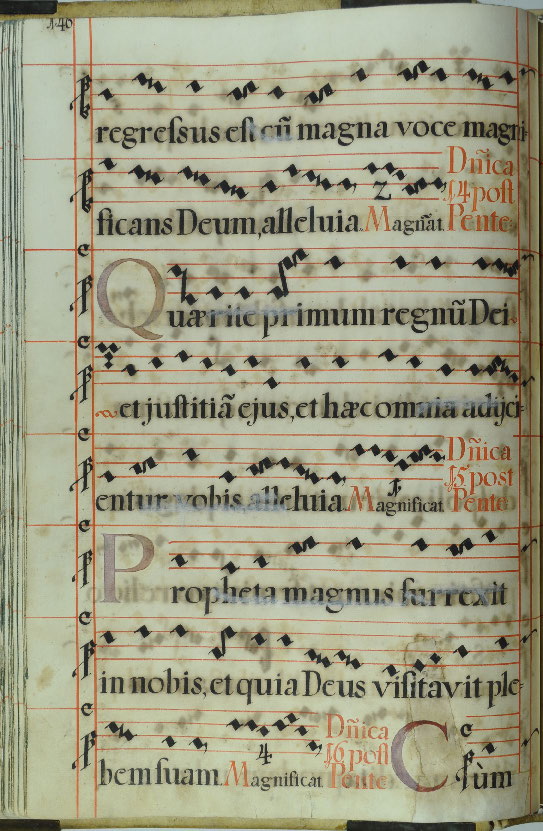 146
regressus est cũ magna voce magni-
ficans Deum, alleluia. Magñat. Dñica
14 post
Pente.
2
Quærite primum regnũ Dei.
et justitiã ejus, et hæc omnia adijci-
entur vobis alleluia. Magnificat Dñica
15 post
Pente.
1.
Propheta magnus surrexit
in nobis, et quia Deus visitavit ple-
bem suam. Magnificat Dñica
16 post
Pente
4
Cùm